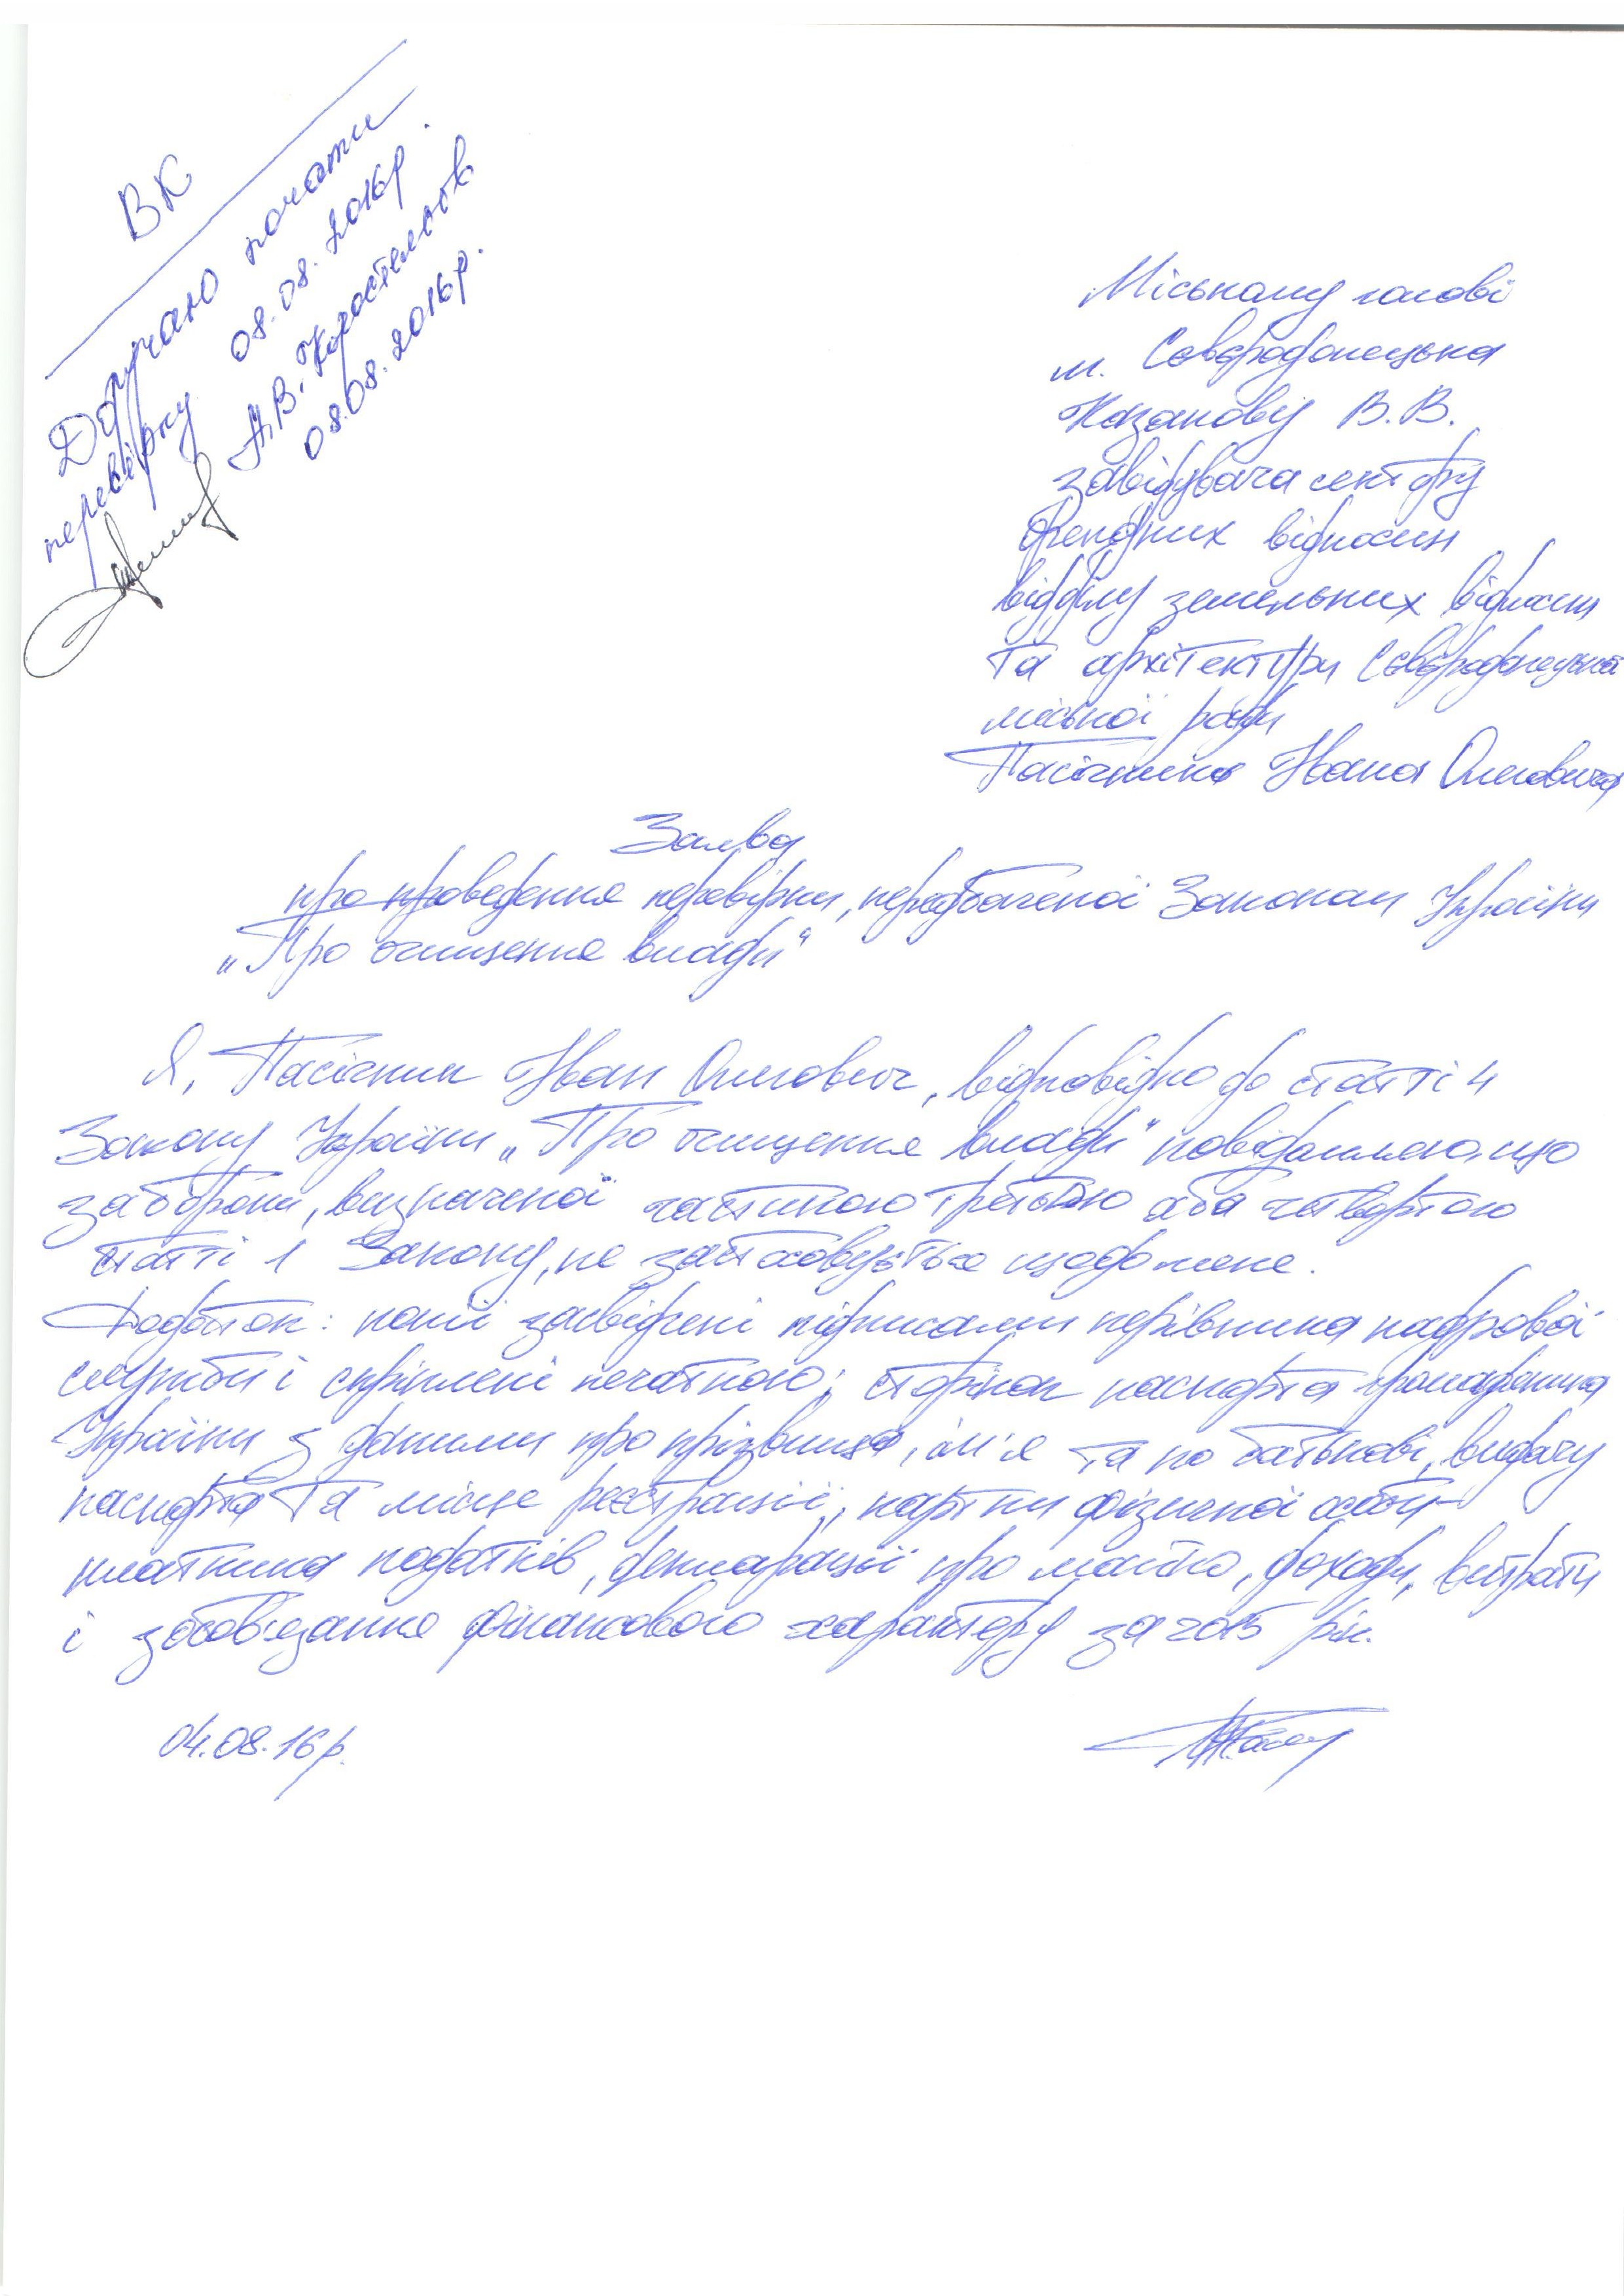 ВК
Доручаю почати
перевірку 08.08.2016р.
А.В. Коростельов
08.08.2016р.
Міському голові
м. Сєвєродонецька
Казакову В.В.
завідувача сектору
орендних відносин
відділу земельних відносин
та архітектури Сєвєродонецької
міської ради
Пасічника Івана Олеговича
Заява
про проведення перевірки, передбаченої Законом України
„Про очищення влади"
Я, Пасічник Іван Олегович, відповідно до статті 4
Закону України „Про очищення влади" повідомляю, що
заборони, визначеної частиною третьою або четвертою
статті 1 Закону, не застосовується щодо мене.
Додаток: копії засвідчені підписами керівника кадрової
служби і скріплені печаткою; сторінок паспорта громадянина
України з даними про прізвище, ім'я та по батькові, видачу
паспорта та місце реєстрації, картки фізичної особи-
платника податків, декларації про майно, доходи, витрати
і зобов'язання фінансового характеру за 2015 рік.
04.08.16р.